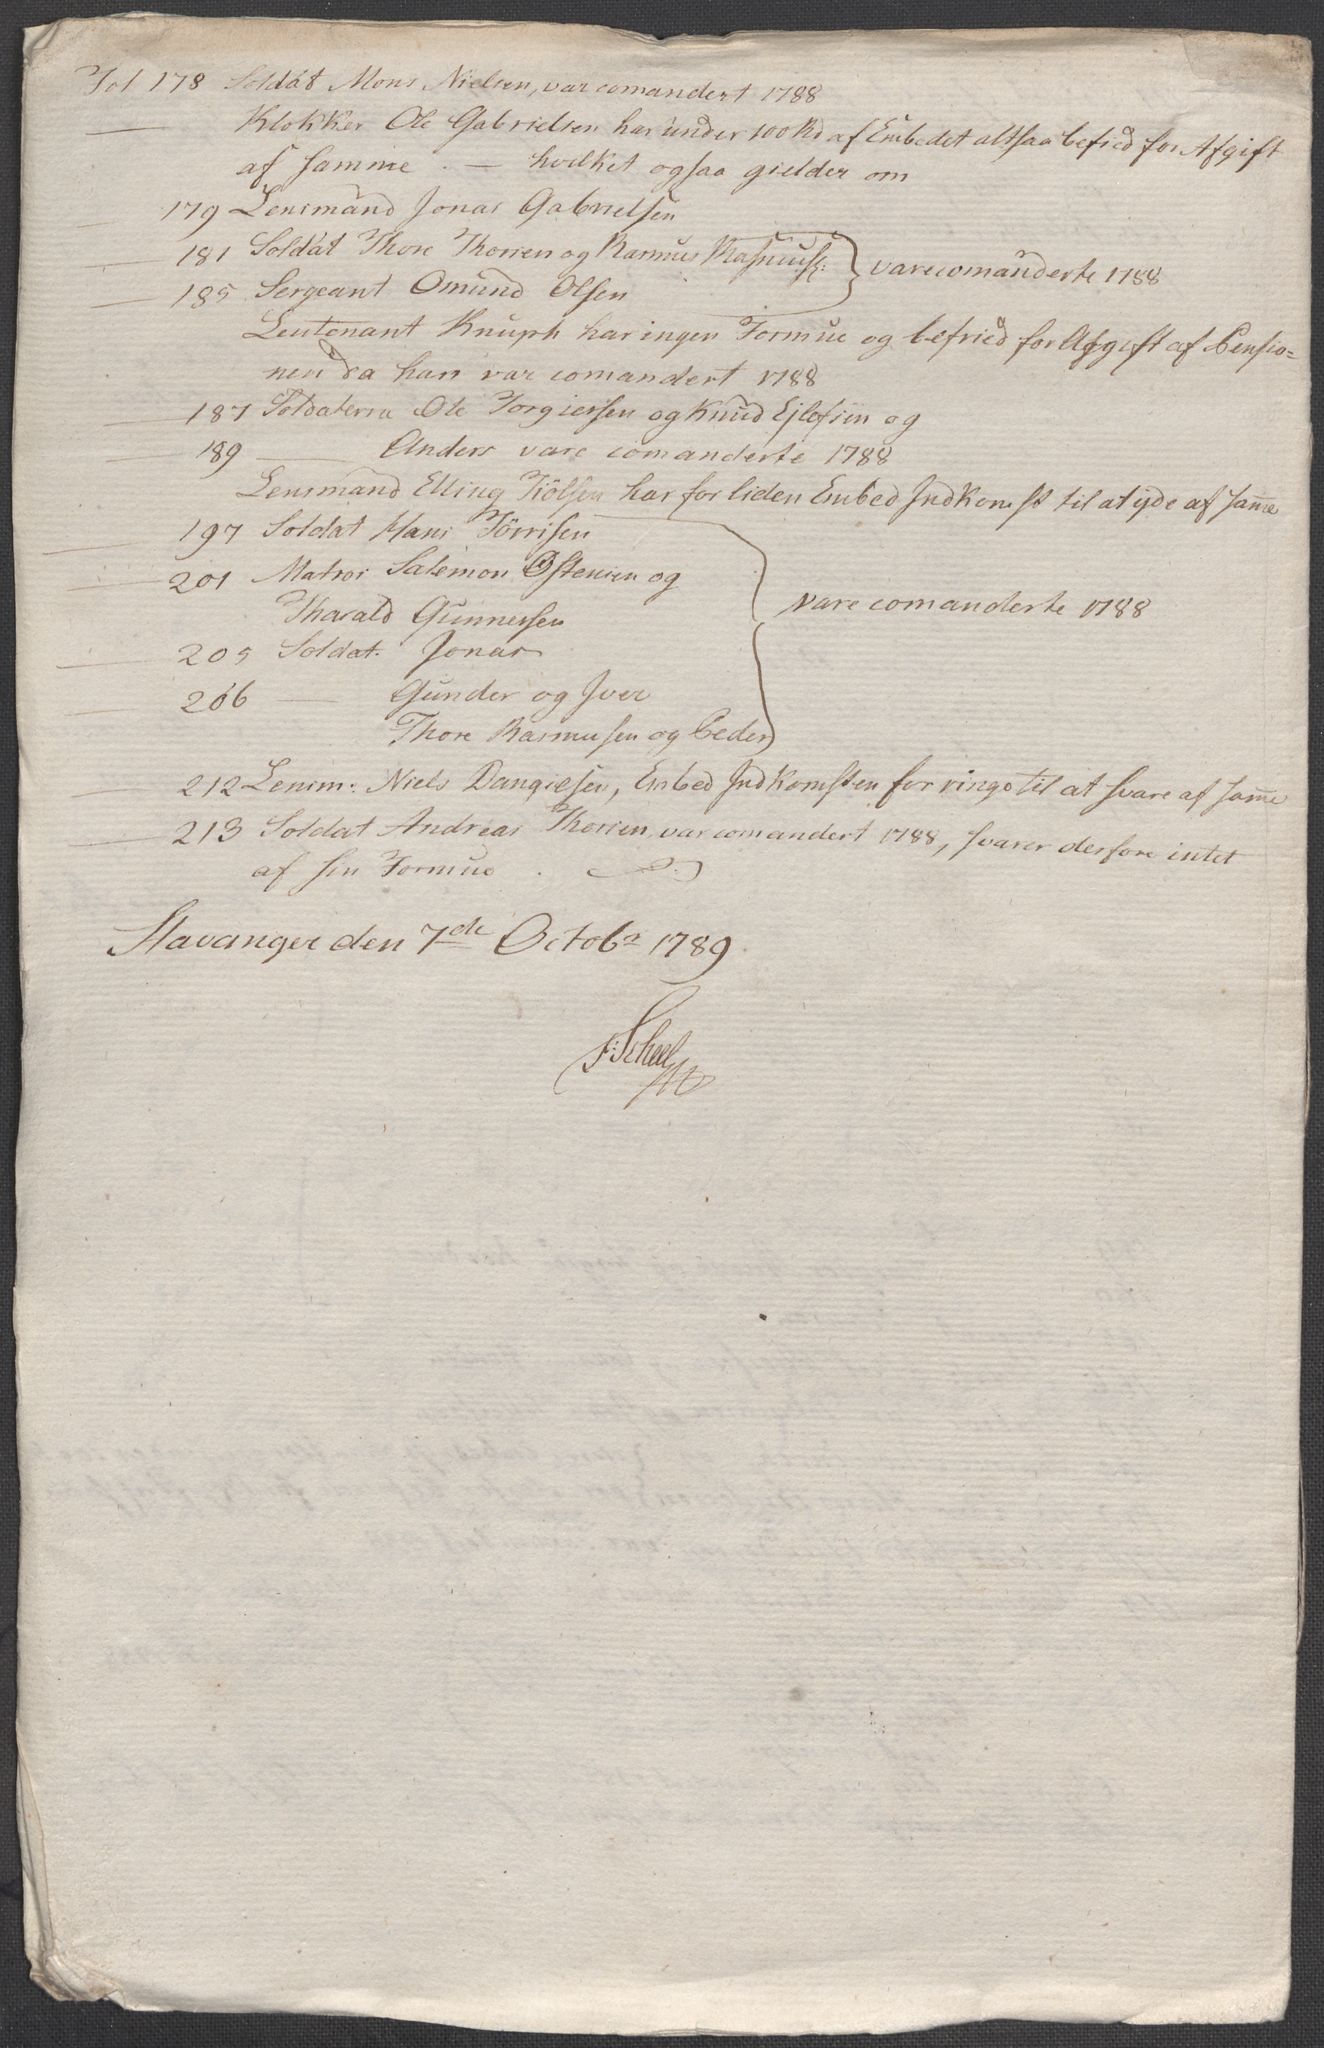 Fol 178 Soldat Mons Nielsen, var comandert 1788
— Klokker Ole Gabrielsen har under 100 Rd af Embedet altsaa befried for Afgift
af samme. — hvilket ogsaa gielder om
— 179 Lensmand Jonas Gabrielsen
— 181 Soldat Thore Thorsen og Rasmus Rasmus: } vare comanderte 1788
— 185 Sergeant Omund Olsen
Leutenant Knuph har ingen Formue og befried for Afgift af Pensio=
nen da han var comandert 1788
— 187 Soldaterne Ole Torgiersen og Knud Ejlefsen og
— 189 — Anders vare comanderte 1788
Lensmand Elling Tiölsen har for liden Embed Indkomst til at yde af same
— 197 Soldat Hans Törrisen
— 201 Matros Salemon Østensen og
Tharald Gunnersen } vare comanderte 1788
— 205 Soldat Jonas
— 206 — Gunder og Iver
Thore Rasmusen og Peder
— 212 Lensm: Niels Danielsen, Embed Indkomsten for ringe til at svare af same
— 213 Soldat Andreas Thorsen var comandert 1788, svarer derfore intet
af sin Formue.
Stavanger den 7de Octobr 1789.
F: Scheel